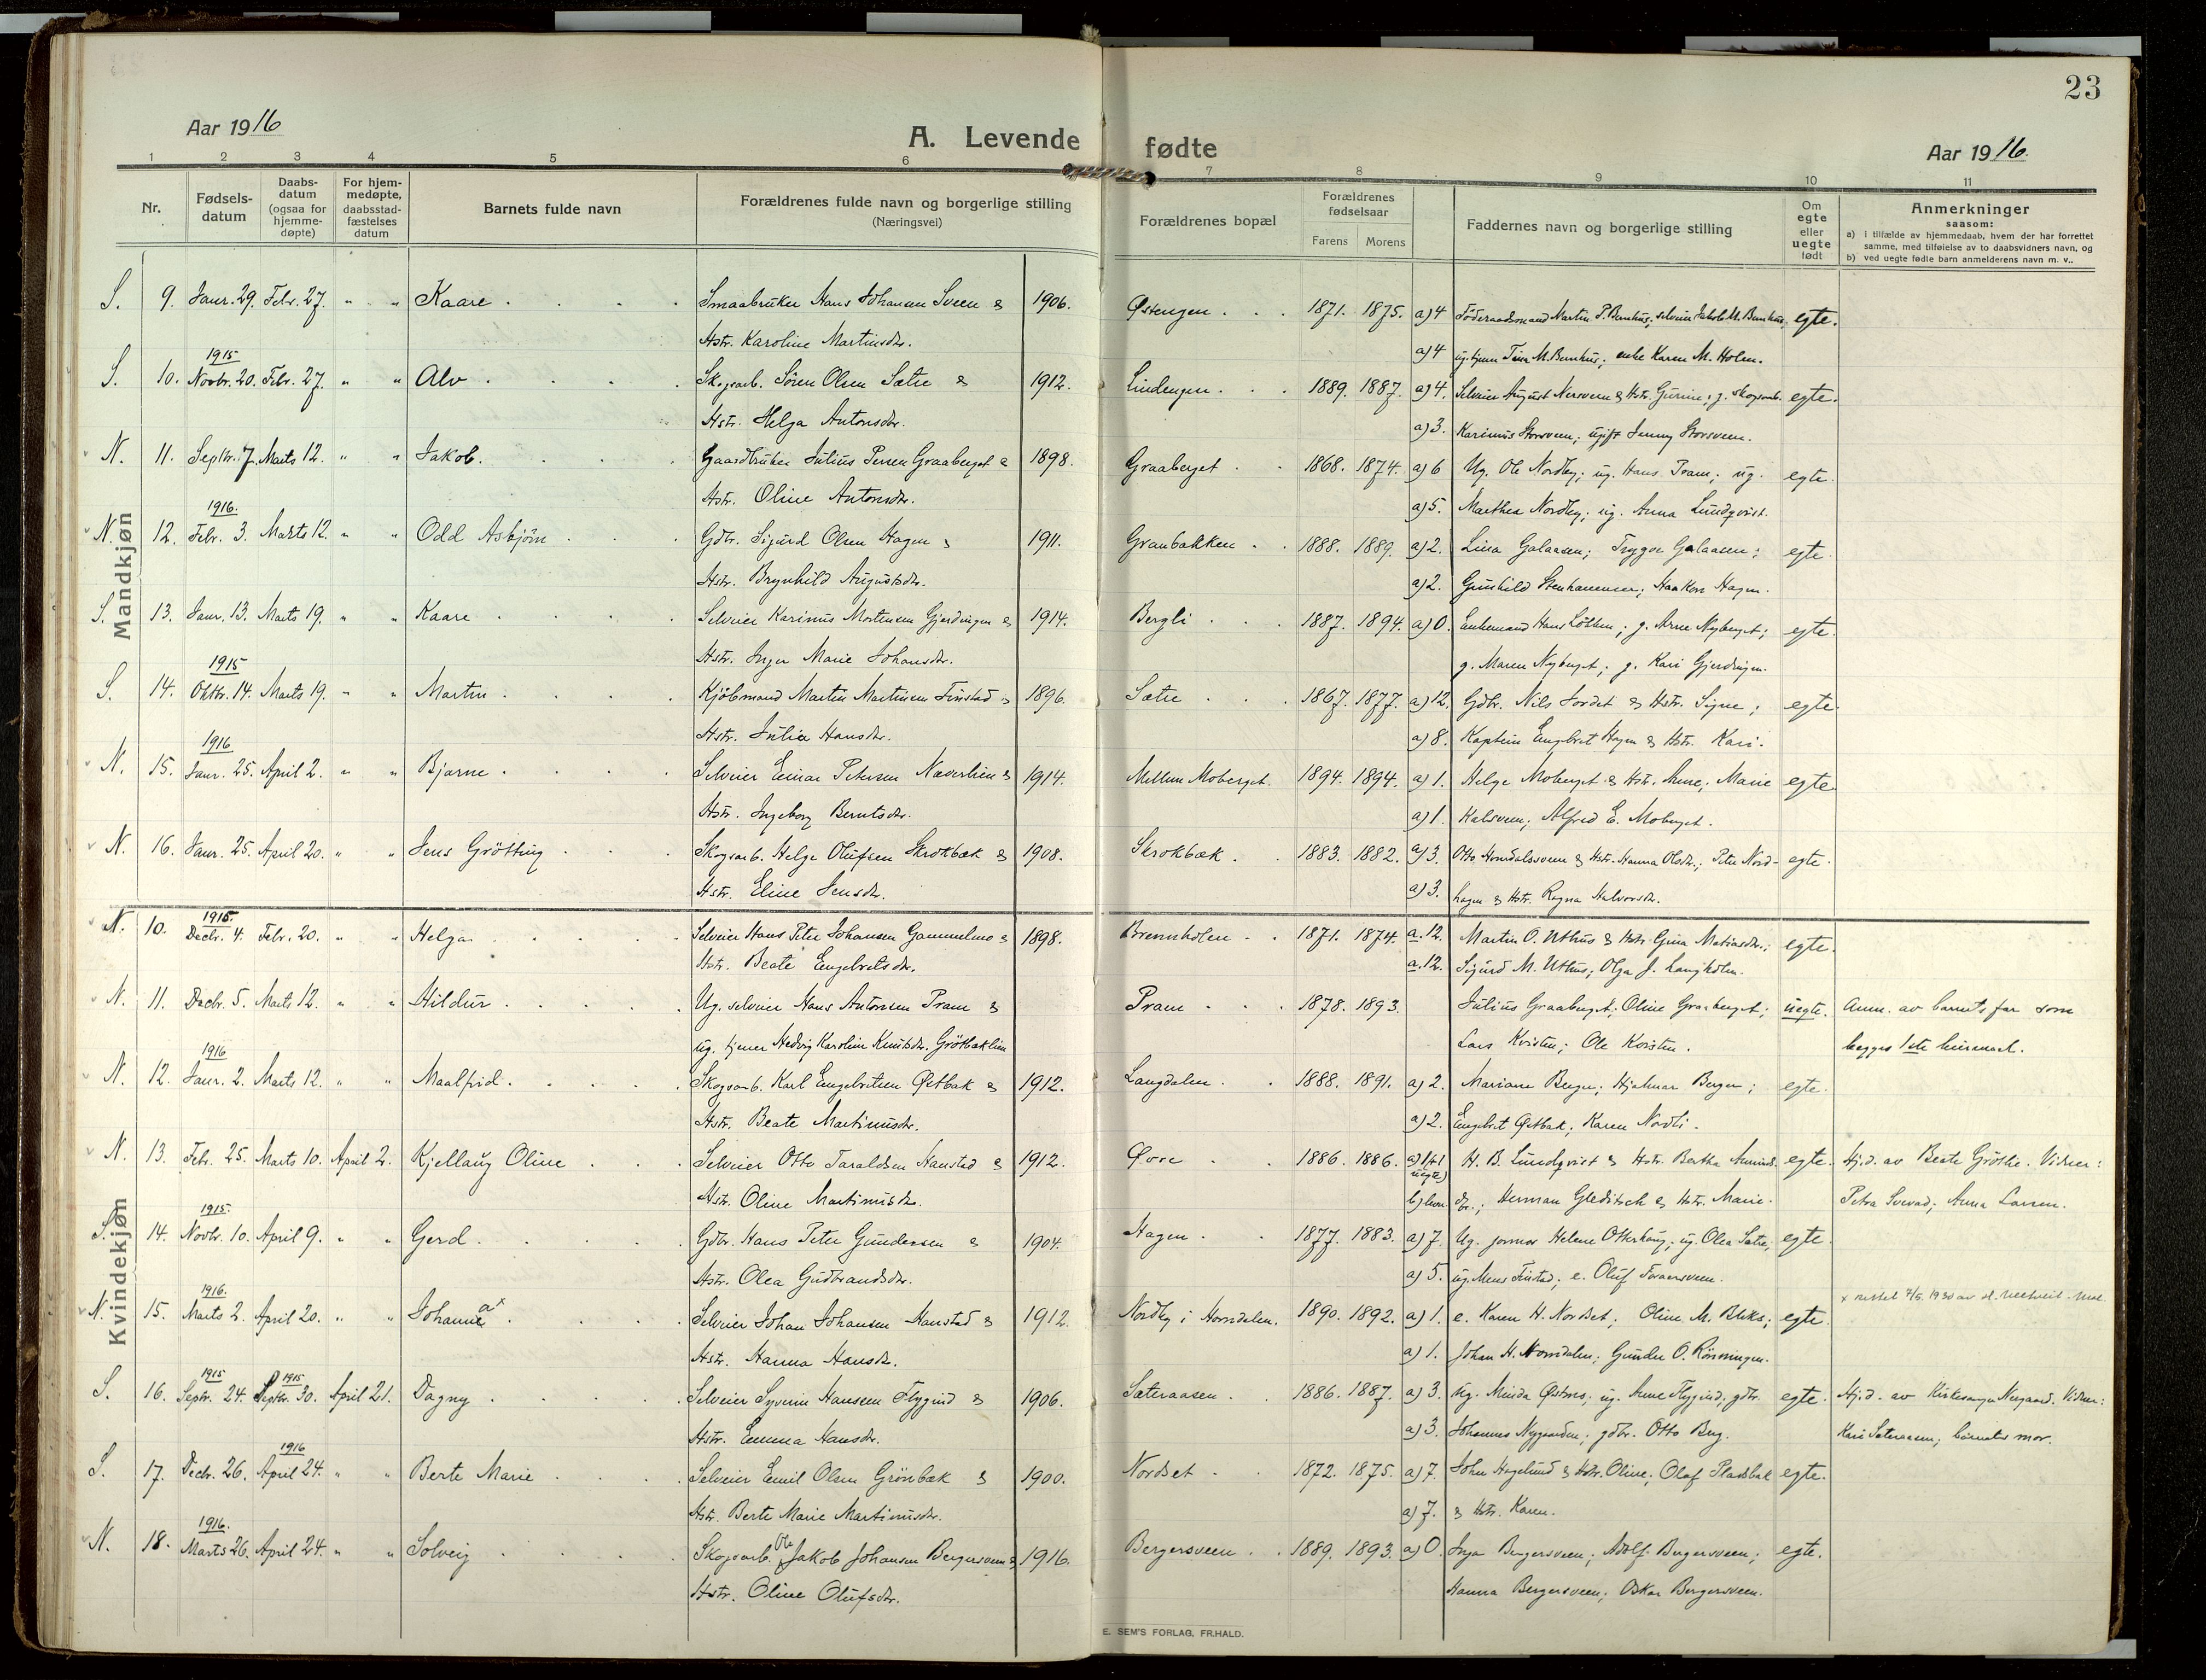 23
Aar 1916
A. Levende fødte
Aar 1916.
1 2 3 4 5 6 7 8 9 10 11
Nr.
Fødsels-
datum
Daabs-
datum
(ogsaa for
hjemme-
døpte)
For hjem-
medøpte,
daabsstad-
fæstelses
datum
Barnets fulde navn
Forældrenes fulde navn og borgerlige stilling
(Næringsvei)
Forældrenes bopæl
Forældrenes
fødselsaar
Farens Morens
Faddernes navn og borgerlige stilling
Om
egte
eller
uegte
født
Anmerkninger
saasom:
a) i tilfælde av hjemmedaab, hvem der har forrettet
samme, med tilføielse av to daabsvidners navn, og
b) ved uegte fødte barn anmelderens navn m. v..
Mandkjøn
S. 9. Janr. 29. Febr. 27. " " Kaare . Smaabruker Hans Johansen Sveen & 1906. Østengen . 1871. 1875. a) 4 Föderaadsmand Martin P. Bunhus; selveier Jakob M. Bunhus; egte.
Hstr. Karoline Martinsdr. a) 4 ug. tjener Tina M. Bunhus; enke Karen M. Holen.
1915
S. 10. Novbr. 20. Febr. 27. " " Alv . Skogsarb. Sören Olsen Sætre & 1912. Lindengen . 1889. 1887. a) 4. Selveier August Nersveen & Hstr. Gurine; g. skogsarb. egte.
Hstr. Helga Antonsdr. a) 3. Karinus Storsveen; ugift Jenny Storsveen.
N. 11. Septbr. 7. Marts 12. " " Jakob. Gaardbruker Julius Persen Graaberget & 1898. Graaberget . 1868. 1874. a) 6 Ug. Ole Nordby; ug. Hans Pram; ug. egte.
Hstr. Oline Antonsdr. a) 5. Marthea Nordby; ug. Anna Lundqvist.
1916.
N. 12. Febr. 3. Marts 12. " " Odd Asbjörn . Gdbr. Sigurd Olsen Hagen & 1911. Granbakken . 1888. 1889. a) 2. Lina Galaasen; Trygve Galaasen; egte.
Hstr. Brynhild Augustsdr. a) 2. Gunhild Stenhammer; Haakon Hagen.
S. 13. Janr. 13. Marts 19. " " Kaare . Selveier Karinus Mortensen Gjerdingen & 1914. Bergli . 1887. 1894. a) 0. Enkemand Hans Löthen; g. Arne Nyberget; egte.
Hstr. Inga Marie Johansdr. g. Maren Nyberget; g. Kari Gjerdingen.
1915
S. 14. Oktbr. 14. Marts 19. " " Martin . Kjöbmand Martin Martinsen Finstad & 1896. Sætre . 1867. 1877. a) 12. Gdbr. Nils Jordet & Hstr. Signe; egte.
Hstr. Julia Hansdr. a) 8. Kaptein Engebret Hagen & Hstr. Kari.
1916
N. 15. Janr. 25. April 2. " " Bjarne . Selveier Einar Petersen Næverlien & 1914. Mellem Moberget. 1894. 1894. a) 1. Helge Moberget & Hstr. Anne; Marie egte.
Hstr. Ingeborg Berntsdr. a) 1. Kalsveen; Alfred E. Moberget.
N. 16. Janr. 25. April 20. " " Jens Grötting . Skogsarb. Helge Olufsen Skrokbæk & 1908. Skrokbæk . 1883. 1882. a) 3. Otto Horndalssveen & Hstr. Hanna Olsdr.; Peter Nord- egte.
Hstr. Eline Jensdr. a) 3. hagen & Hstr. Ragna Halvorsdr.
Kvindekjøn
1915.
N. 10. Decbr. 4. Febr. 20. " " Helga . Selveier Hans Peter Johansen Gammelmo & 1898. Brennholen . 1871. 1874. a. 12. Martin O. Uthus & Hstr. Gina Matiasdr.; egte.
Hstr. Beate Engebretsdr. a. 12. Sigurd M. Uthus; Olga J. Langholm.
N. 11. Decbr. 5. Marts 12. " " Hildur . Ug. selveier Hans Antonsen Pram & Pram . 1878. 1893. Julius Graaberget; Oline Graaberget; uegte. Anm. av barnets far som
ug. tjener Hedvig Karoline Knutsdr. Grötbæklien Lars Kvisten; Ole Kvisten. begges 1ste leiermaal.
1916
N. 12. Janr. 2. Marts 12. " " Maalfrid . Skogsarb. Karl Engebretsen Østbak & 1912. Langdalen . 1888. 1891. a) 2. Mariane Berger; Hjalmar Berger; egte.
Hstr. Beate Martinusdr. a) 2. Engebret Østbak; Karen Nordli.
N. 13. Febr. 25. Marts 10. April 2. Kjellaug Oline . Selveier Otto Taraldsen Hanstad & 1912. Øvre . 1886. 1886. a) 1+1 uegte) H. B. Lundqvist & Hstr. Bertha Amunds- egte. Hj.d. av Beate Gröthe. Vidner:
Hstr. Oline Martinusdr. b) levn. dr.; Herman Gleditsch & Hstr. Marie. Petra Svevad; Anna Larsen.
1915.
S. 14. Novbr. 10. April 9. " " Gerd . Gdbr. Hans Peter Gundersen & 1904. Hagen . 1877. 1883. a) 7. Ug. jormor Helene Otterhaug; ug. Olea Sætre; egte.
Hstr. Olea Gudbrandsdr. a) 5. ug. Mens Finstad; e. Oluf Foraersveen.
1916.
N. 15. Marts 2. April 20. " " Johanne a x . Selveier Johan Johansen Hanstad & 1912. Nordby i Horndalen. 1890. 1892. a) 1. e. Karen H. Nordset; Oline M. Bliks; egte. x rettet 7/5. 1930 av
Hstr. Hanna Hansdr. a) 1. Johan H. Horndalen; Gunder O. Rönningen.
1915 1915
S. 16. Septr. 24. Septbr. 30. April 21. Dagny . Selveier Syverin Hansen Flygind & 1906. Sæteraasen . 1886. 1887. a) 3. Ug. Minda Østmo; ug. Anne Flygind; gdbr. egte. Hj.d. av Kirkesanger Neegaard. Vidner:
Hstr. Emma Hansdr. a) 3. Johannes Nygaarden; gdbr. Otto Berg. Kari Sæteraasen; barnets mor.
1916
S. 17. Decbr. 26. April 24. " " Berte Marie . Selveier Emil Olsen Grönbæk & 1900. Nordset . 1872. 1875. a) 7. John Hagelund & Hstr. Oline; Olaf Pladsbak egte.
Hstr. Berte Marie Martinusdr. a) 7. & Hstr. Karen.
1916.
N. 18. Marts 26. April 24. " " Solveig . Skogsarb. Ole Jakob Johansen Bergersveen & 1916. Bergersveen . 1889. 1893. a) 0. Inga Bergersveen; Adolf Bergersveen; egte.
Hstr. Oline Olufsdr. Hanna Bergersveen; Oskar Bergersveen.
E. SEM'S FORLAG, FR.HALD.